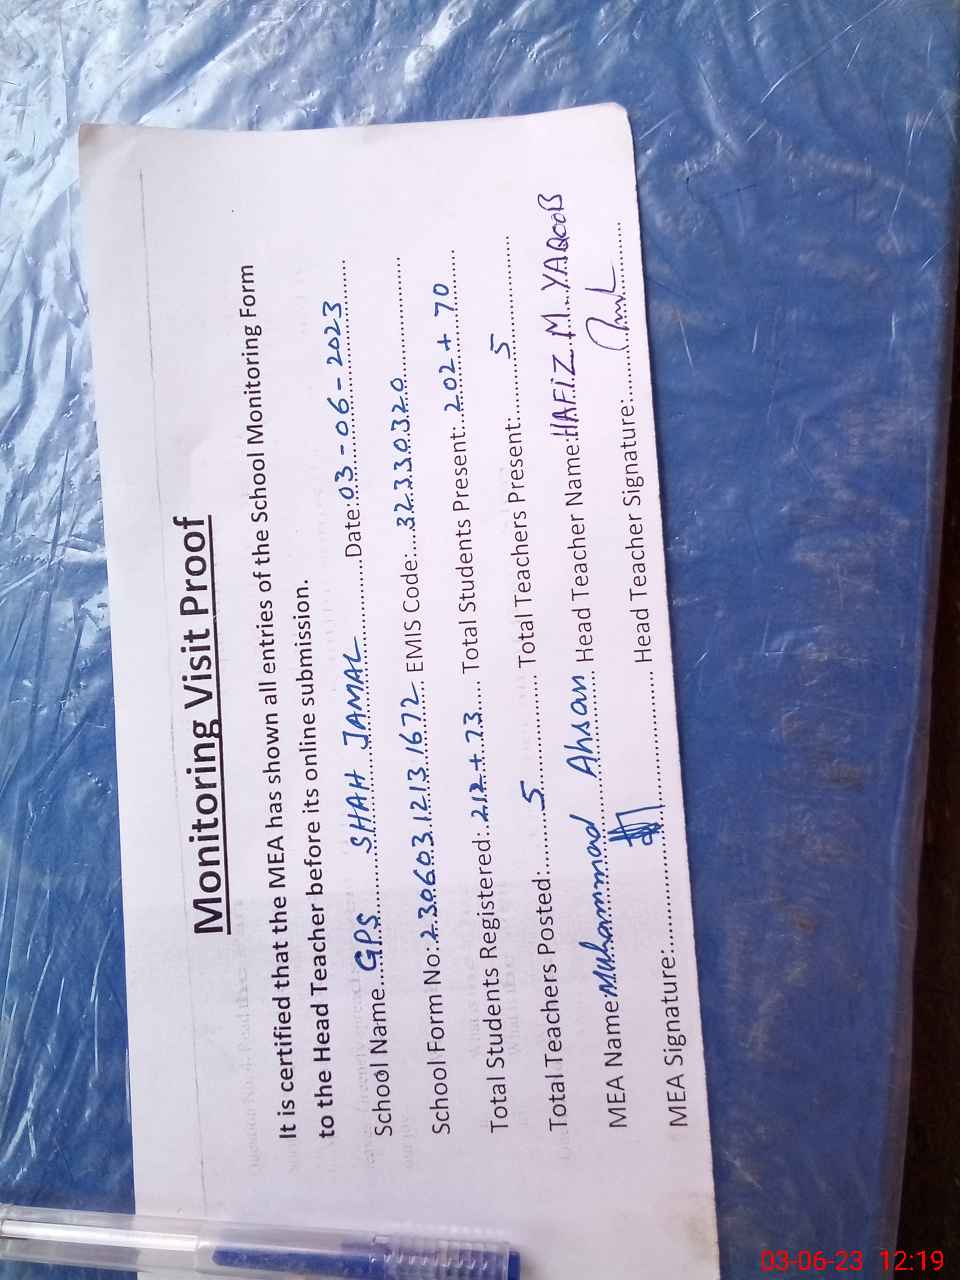 Monitoring Visit Proof
It is certified that the MEA has shown all entries of the School Monitoring Form
to the Head Teacher before its online submission.
School Name....GPS......SHAH JAMAL..............Date:03-06-2023......
School Form No:2306031213 1672.. EMIS Code:....32330320..................
Total Students Registered:.212+73..... Total Students Present:.202+70.....
Total Teachers Posted:.........5................. Total Teachers Present:.........5..................
MEA Name:Muhammad Ahsan Head Teacher Name:HAFIZ M. YAQOOB
MEA Signature:........................................ Head Teacher Signature:..........................
03-06-23 12:19